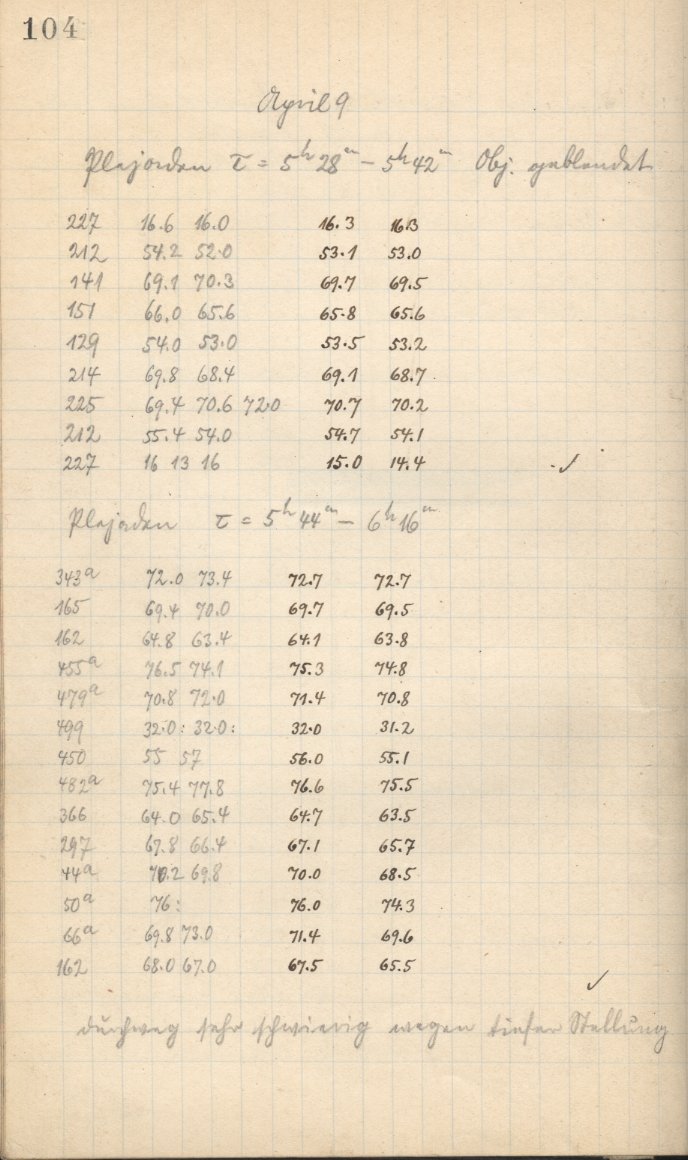 104
April 9
Plejaden τ = 5h 28m – 5h 42m Obj. geblendet
227 16.6 16.0 16.3 16.3
212 54.2 52.0 53.1 53.0
141 69.1 70.3 69.7 69.5
151 66.0 65.6 65.8 65.6
129 54.0 53.0 53.5 53.2
214 69.8 68.4 69.1 68.7
225 69.4 70.6 72.0 70.7 70.2
212 55.4 54.0 54.7 54.1
227 16 13 16 15.0 14.4 ✓
Plejaden τ = 5h 44m – 6h 16m
343a 72.0 73.4 72.7 72.7
165 69.4 70.0 69.7 69.5
162 64.8 63.4 64.1 63.8
455a 76.5 74.1 75.3 74.8
479a 70.8 72.0 71.4 70.8
499 32.0: 32.0: 32.0 31.2
450 55 57 56.0 55.1
482a 75.4 77.8 76.6 75.5
366 64.0 65.4 64.7 63.5
297 67.8 66.4 67.1 65.7
44a 70.2 69.8 70.0 68.5
50a 76: 76.0 74.3
66a 69.8 73.0 71.4 69.6
162 68.0 67.0 67.5 65.5 ✓
durchweg sehr schwierig wegen tiefer Stellung